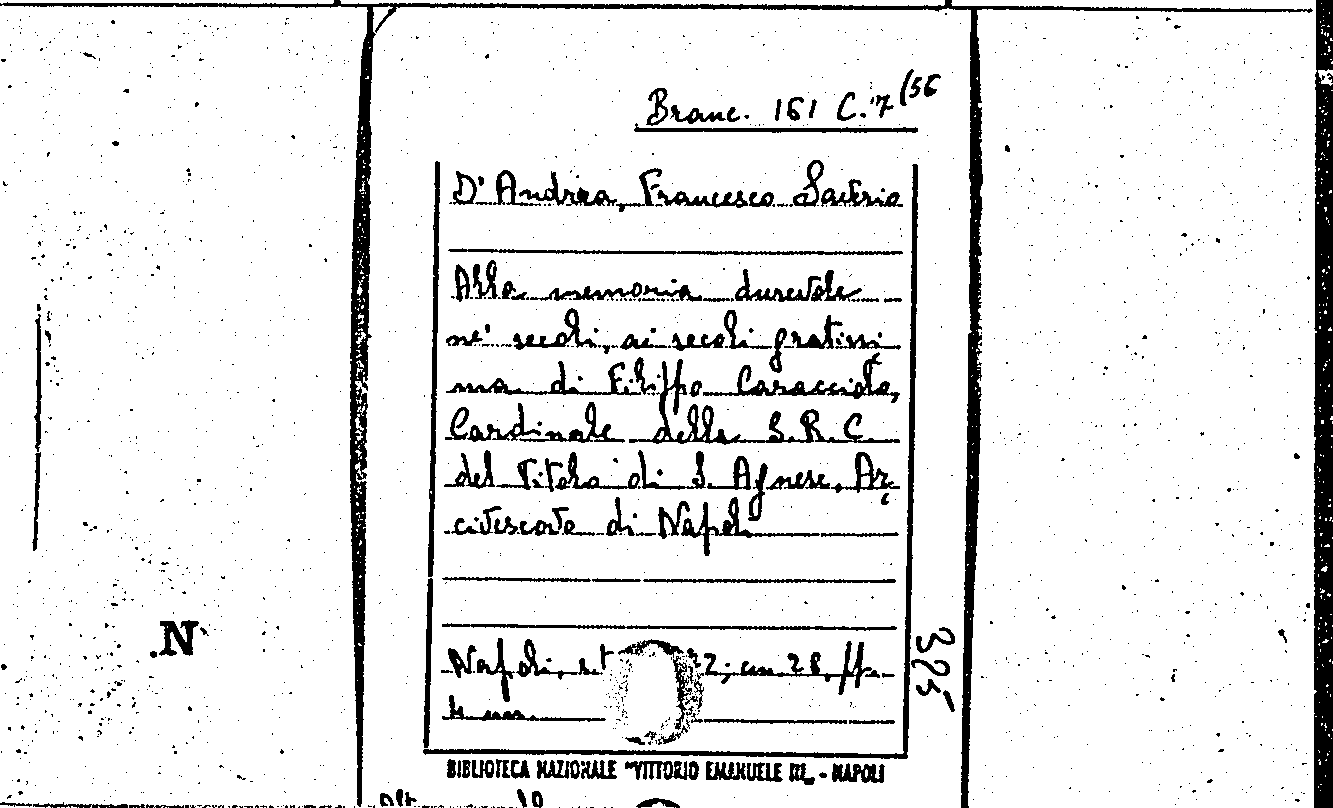 Branc. 161 C. 7 (56
D' Andrea, Francesco Saverio
Alla memoria durevole
ne' secoli, ai secoli gratissi
ma di Filippo Caracciolo,
Cardinale della S.R.C.
del Titolo di S. Agnese, Ar
civescovo di Napoli
Napoli, s.t. 22; cm. 28, pp.
4 nn.
395
.N
BIBLIOTECA NAZIONALE "VITTORIO EMANUELE III" - NAPOLI